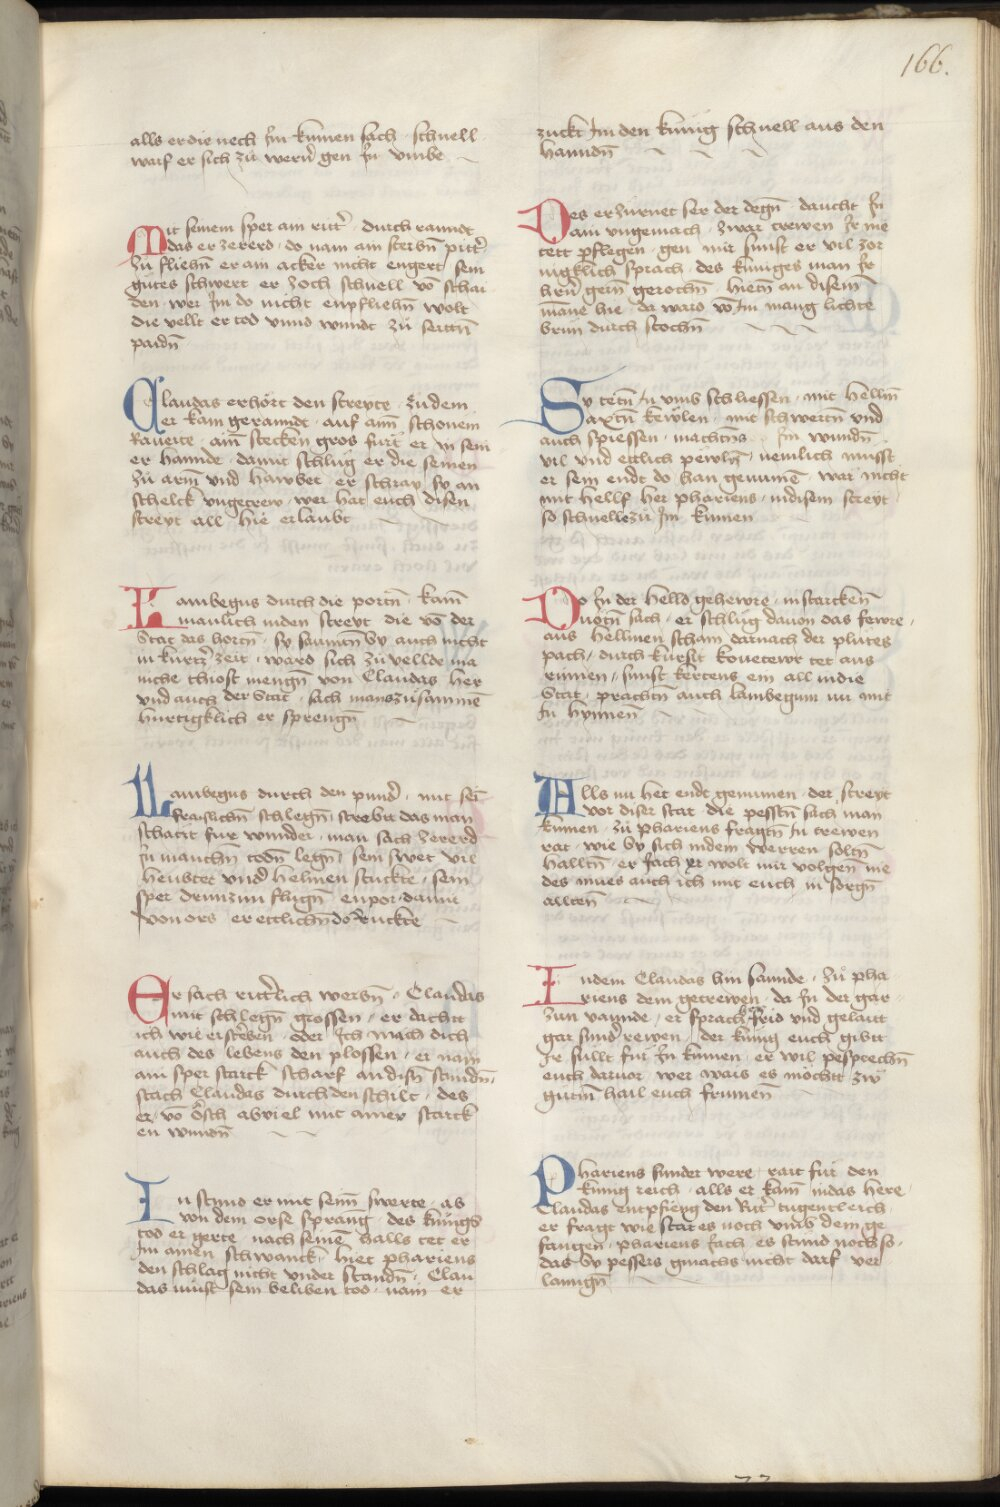 166.
alls er die nech Im kumen sach schnell
warf er sich zu wern̄ gen In vmbe
Mit seinem sper am ritt̄ durch ranndt
das er zererd do nam am sterbn̄ pitt̄
zu fliehn̄ er am acker nicht engert sein
guetes schwert er zoch schnell vō schai
den wer Im do nicht enpfliehn̄ wolt
die vellt er tod vnnd wundt zu seittn̄
paidn̄
Claudas erhört den streyte zu dem
er kam geranndt auf aim̄ schonem
Raueite aim̄ stecken gros furt er in sein
er hannde damit schlug er die seinen
zu arm̄ vnd hawbet er schray sy an
schelck vngetrew wer hat euch disen
streyt all hie erlaubt
Lambegus durch die portn̄ kam̄
maulich inden streyt die vō der
Stat das hortn̄ sy saumtn̄ sy auch nicht
in kurtz̄ zeit ward sich zu vellde ma
niche thiost mengn̄ von Claudas her
vnd auch der Stat sach mans zusammē
hurtigklich er sprengn̄
Lambegus durch den pund̄ mit seī
fraislichn̄ schlegn̄ strebtt das man
schatzt fur wunder man sach zererd
In manchn̄ todn̄ legn̄ sein swet vil
heubtet vnd̄ helmen stuckte sein
sper drumzun flugn̄ enpor damit
von ors er ettlichn̄ do Ruckte
Er sach rittr̄lich werbn̄ Claudas
mit schlegn̄ grossen er dachtt
ich wil ersterben oder Ich mach dich
auch des lebens den plossen er nam
ain sper starck scharf an disn̄ stundn̄
stach Claudas durch den schilt des
er vō Orsch abviel mit ainer starck
en wundn̄
In stund er mit seim̄ swerte as
von dem orse sprang des kunigs
tod er gerte nach seinē halls tet er
Im ainen schwanck hiet phariens
den schlag nicht vnder standn̄ Clau
das must sein beliben tod nam er
zuckt Im den kunig schnell aus den
hanndn̄
Des erzurnet ser der degn̄ daucht In
ain vngemach zwar trewen Ir nie
tett pflegen gen mir sunst er vil zor
nigklich sprach des kuniges man Ir
hern̄ gern̄ gerochn̄ hietn̄ an disem̄
mane hie da ward vō Im manig lichte
brun durch stochn̄
Sy tetn̄ In vmb schliessen mit hellm̄
Saxtn̄ kewlen mit schwertn̄ vnd
auch spiessen machtns Im wundn̄
vil vnd ettlich pewln̄ nemlich musst
er sein endt do han genumē war nicht
mit hellf her phariens indisem streyt
so schnelle zu Im kumen
Do In der helld gehewre in starckenn̄
Nottn̄ sach er schlug dauon das fewre
aus hellmen scham darnach der plutes
pach durch kursit kouetewr tet aus
rinnen sunst kertens ein all in die
Stat prachtn̄ auch lambegum nu mit
In hynnen̄
Alls nu het endt genumen der streyt
vor diser stat die pesstn̄ sach man
kumen zu phariens fragtn̄ In trewen
rat wie sy sich indem werren soltn̄
halltn̄ er Jach Ir wolt mir volgen̄ nie
des mues auch ich mit euch in sorgn̄
allten̄
Indem Claudas hin sannde zu pha
riens dem getrewen da In der gar
zun vannde er sprach her frid vnd gelaitt
gar sund̄ rewen der kunig euch gibtt
Ir sullt fur In kumen er wil pesprechn̄
euch daruor wer wais es mochtt zw
gutm̄ hail euch frumen̄
Phariens sunder were rait fur den
kunig reich alls er kam̄ indas here
Claudas entpfieng den Ritr̄ tugentleich
er fragt wie stat es noch vmb dem ge
fangen̄ phariens Jach es stund noch so
das sy pessers gmachs nicht darf ver
lanngn̄